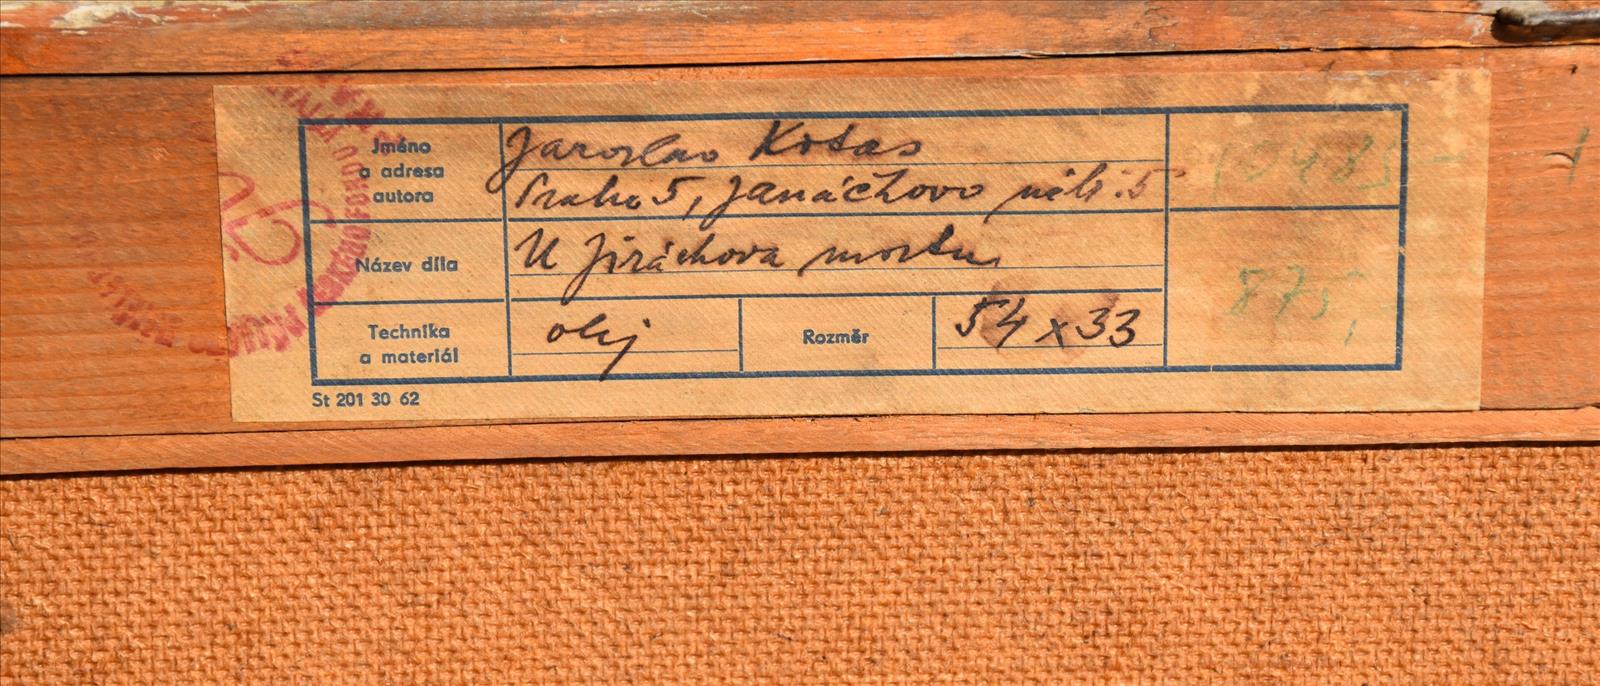 Jméno
a adresa
autora
Jaroslav Kotas
Praha 5, Janáčkovo nábř. 5
Název díla
U Jiráskova mostu
Technika
a materiál
olej
Rozměr
54 x 33
875,-
St 201 30 62